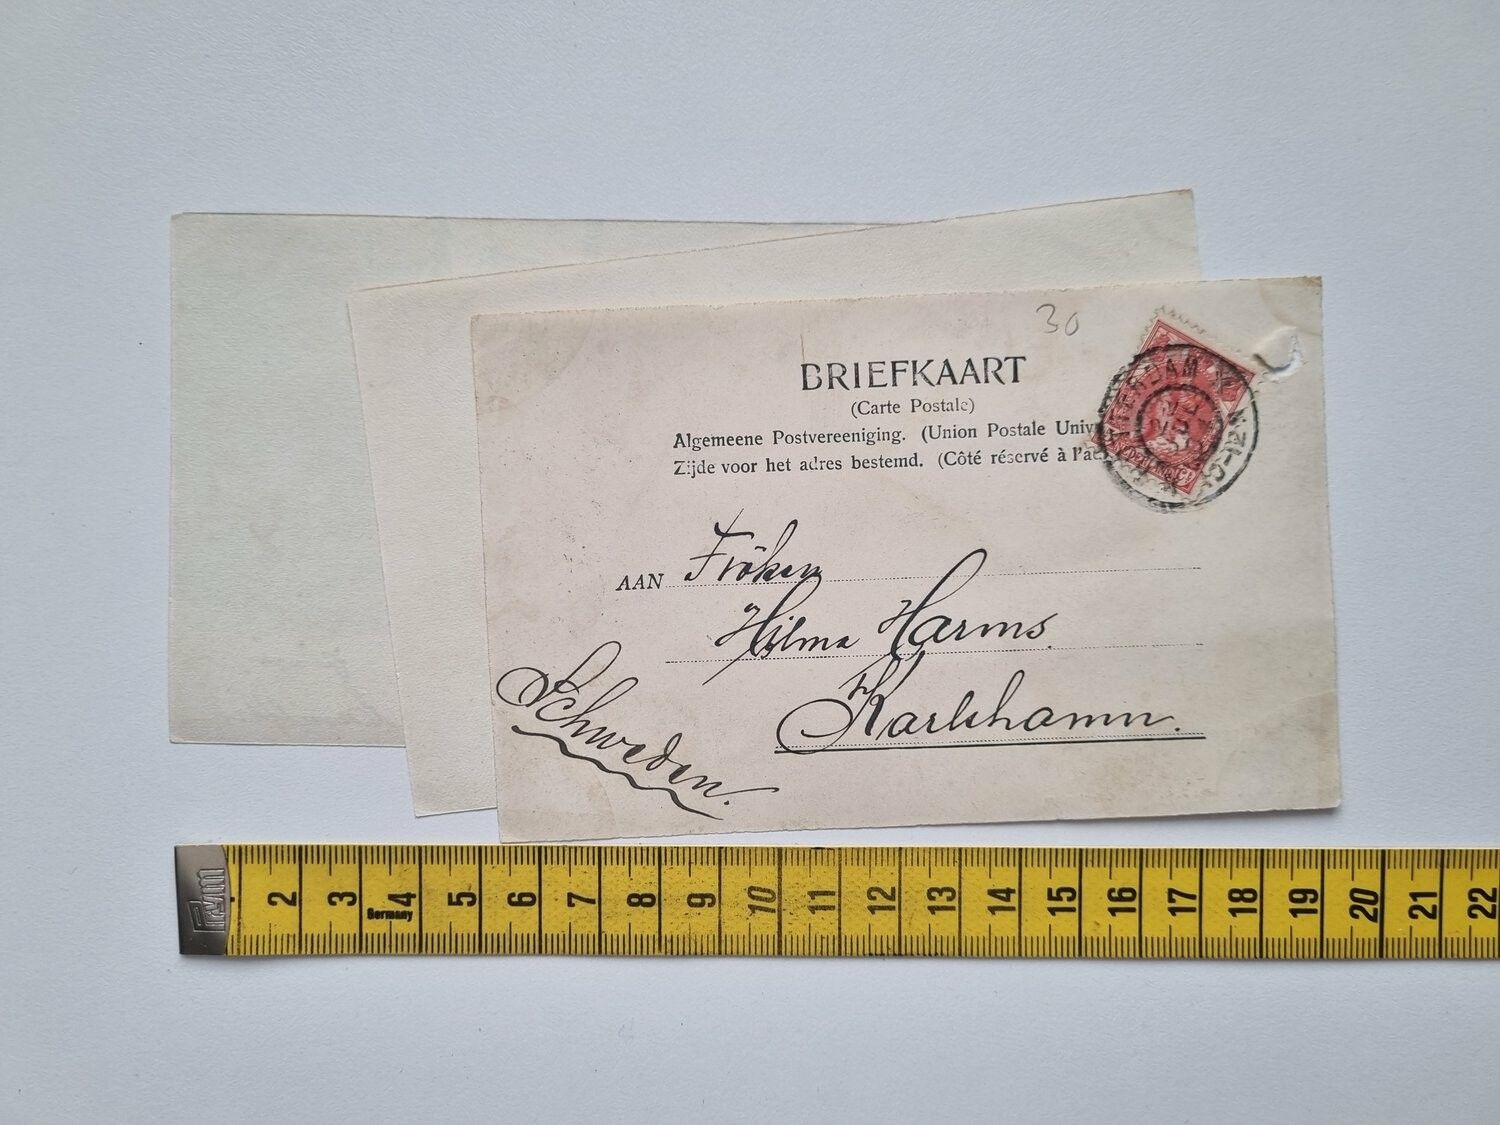 30
BRIEFKAART
(Carte Postale)
Algemeene Postvereeniging. (Union Postale Univ
Zijde voor het adres bestemd. (Côté réservé à l'a
TERDAM
10-12V
AAN Fröken
Hilma Harms.
Karlshamn.
Schweden.
Prym
2 3 4 5 6 7 8 9 10 11 12 13 14 15 16 17 18 19 20 21 22
Germany